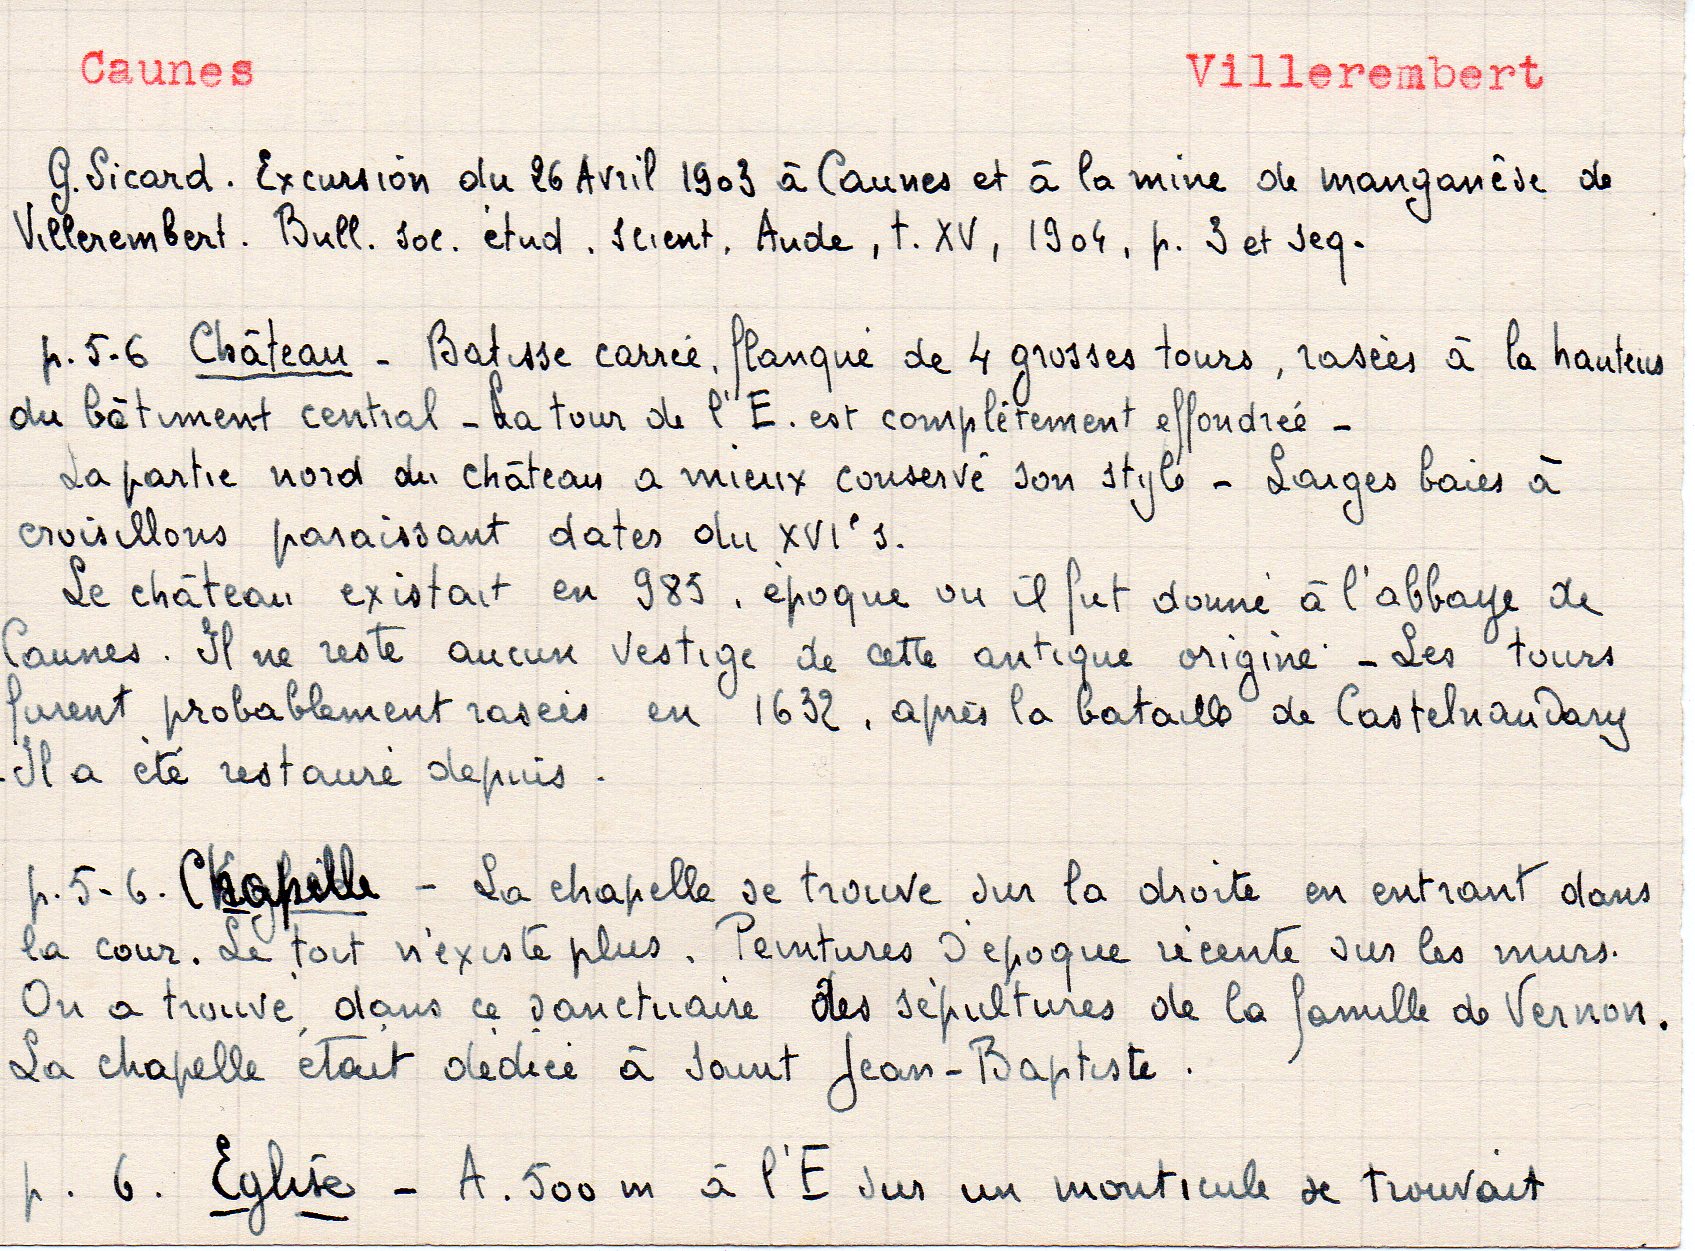 Caunes Villerembert
G. Sicard. Excursion du 26 Avril 1903 à Caunes et à la mine de manganèse de
Villerembert. Bull. soc. étud. scient. Aude, t. XV, 1904, p. 3 et seq.
p. 5-6 Château - Batisse carrée, flanqué de 4 grosses tours, rasées à la hauteur
du bâtiment central - La tour de l'E. est complètement effondrée -
La partie nord du château a mieux conservé son style - Larges baies à
croisillons paraissant dater du XVIe s.
Le château existait en 985, époque ou il fut donné à l'abbaye de
Caunes. Il ne reste aucun vestige de cette antique origine - Les tours
furent probablement rasées en 1632, après la bataille de Castelnaudary
- Il a été restauré depuis.
p. 5-6. Chapelle - La chapelle se trouve sur la droite en entrant dans
la cour. Le toit n'existe plus. Peintures d'époque récente sur les murs.
On a trouvé dans ce sanctuaire des sépultures de la famille de Vernon.
La chapelle était dédiée à saint Jean-Baptiste.
p. 6. Eglise - A. 500 m à l'E sur un monticule se trouvait